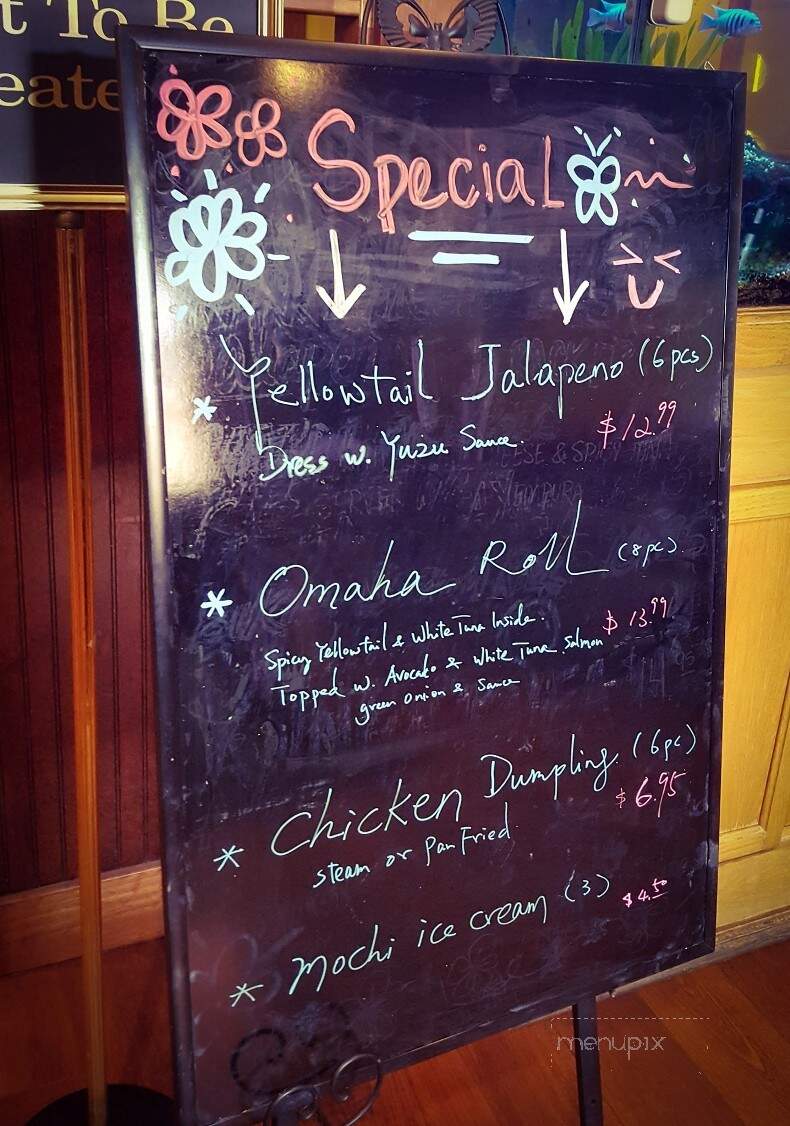 t To Be
eate
Special
* Yellowtail Jalapeno (6pcs)
$12.99
Dress w. Yuzu Sauce.
* Omaha Roll (8pc)
$13.99
Spicy Yellowtail & White Tuna Inside.
Topped w. Avocado & White Tuna Salmon
green onion & Sauce
* Chicken Dumpling. (6pc)
$6.95
steam or Pan Fried
* mochi ice cream (3) $4.50
menupix